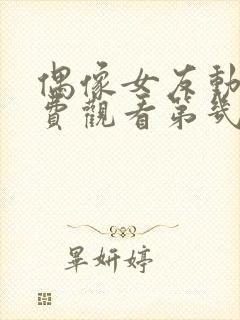 偶像女友動
費觀看第幾
畢妍婷